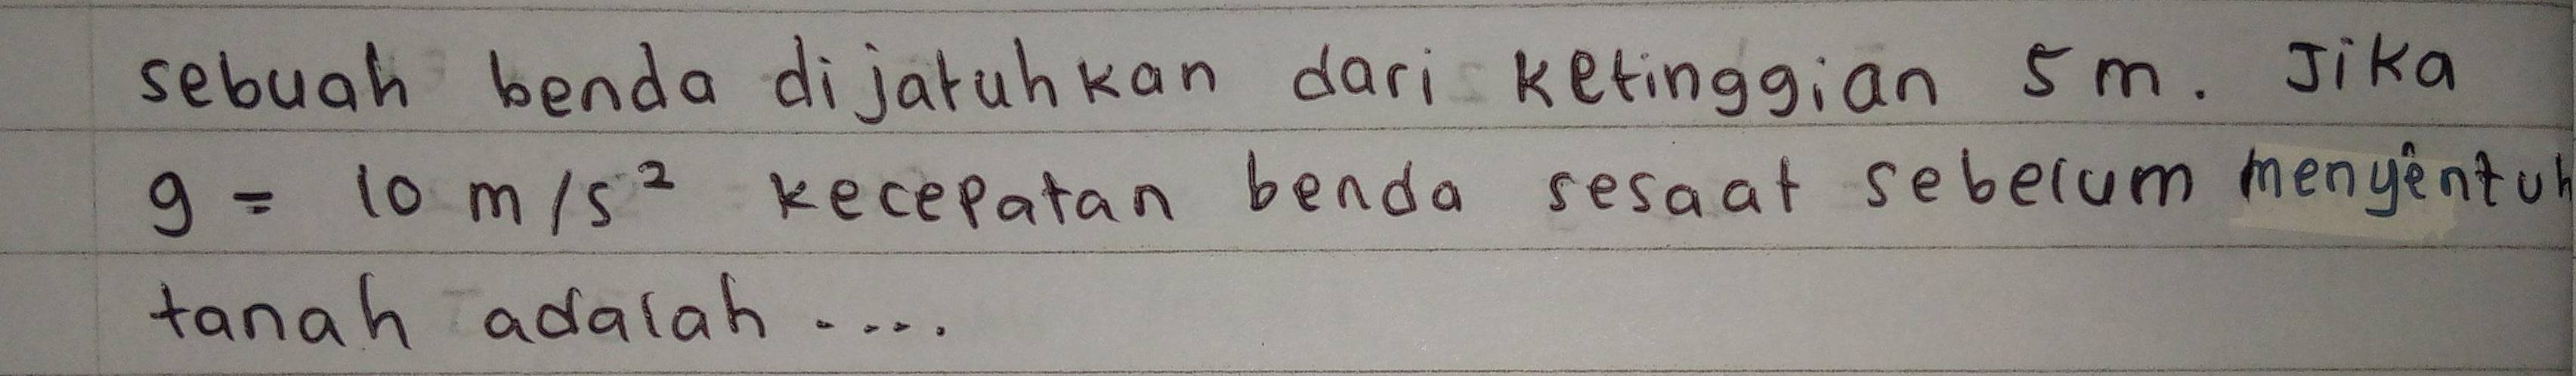 sebuah benda dijatuhkan dari ketinggian 5 m. Jika
g = 10 m/s² kecepatan benda sesaat sebelum menyentuh
tanah adalah ....